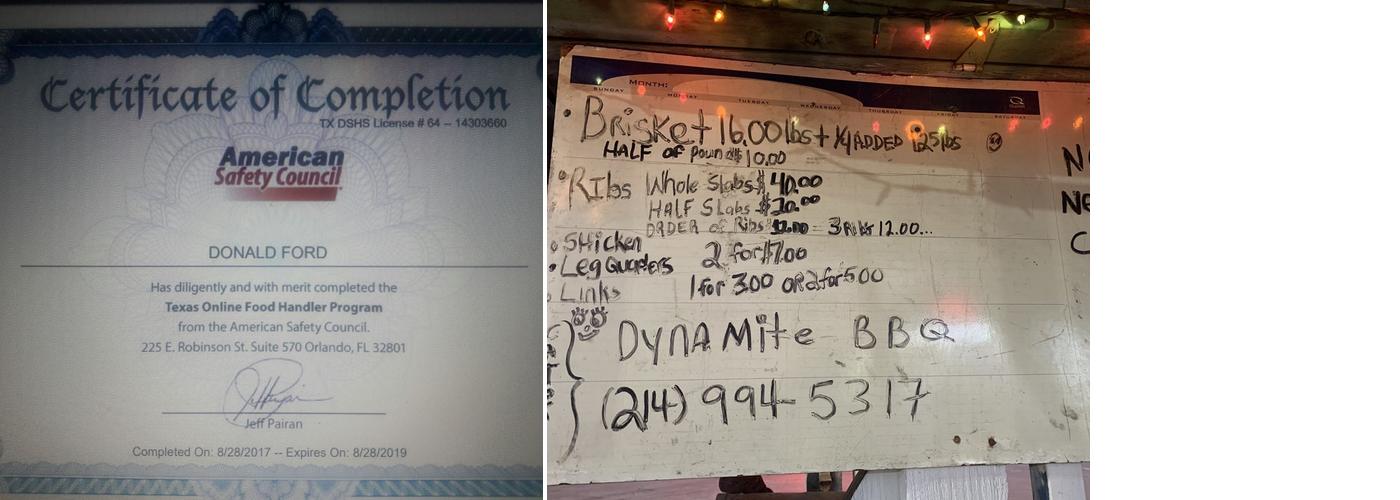 Certificate of Completion
TX DSHS License # 64 -- 14303660
American
Safety Council
DONALD FORD
Has diligently and with merit completed the
Texas Online Food Handler Program
from the American Safety Council.
225 E. Robinson St. Suite 570 Orlando, FL 32801
Jeff Pairan
Completed On: 8/28/2017 -- Expires On: 8/28/2019
MONTH:
SUNDAY MONDAY TUESDAY WEDNESDAY THURSDAY FRIDAY SATURDAY
BRisket 16.00 lbs + 1/4 ADDED 125 lbs
HALF of Pound $10.00
RIbs Whole Slabs $40.00
HALF SLabs $20.00
ORDER of Ribs 12.00 = 3 Ribs 12.00...
SHicken
Leg Quarters 2 for $7.00
Links 1 for 3.00 OR 2 for 5.00
DYNAMite BBQ
(214) 994-5317